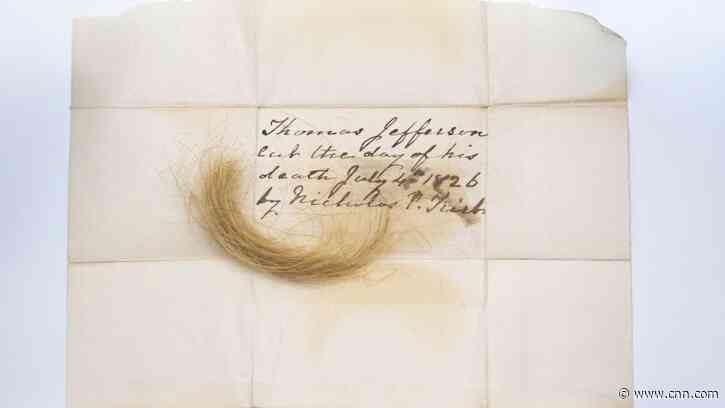 Thomas Jefferson
cut the day of his
death July 4th 1826
by Nicholas P. Trist
www.cnn.com